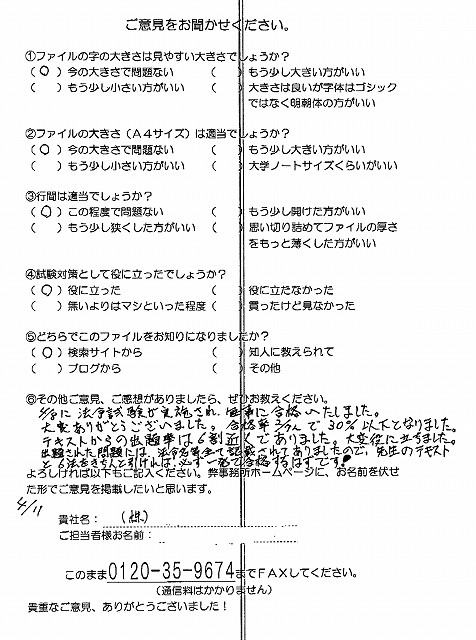 ご意見をお聞かせください。
①ファイルの字の大きさは見やすい大きさでしょうか？
（○）今の大きさで問題ない （ ）もう少し大きい方がいい
（ ）もう少し小さい方がいい （ ）大きさは良いが字体はゴシック
ではなく明朝体の方がいい
②ファイルの大きさ（A4サイズ）は適当でしょうか？
（○）今の大きさで問題ない （ ）もう少し大きい方がいい
（ ）もう少し小さい方がいい （ ）大学ノートサイズくらいがいい
③行間は適当でしょうか？
（○）この程度で問題ない （ ）もう少し開けた方がいい
（ ）もう少し狭くした方がいい （ ）思い切り詰めてファイルの厚さ
をもっと薄くした方がいい
④試験対策として役に立ったでしょうか？
（○）役に立った （ ）役に立たなかった
（ ）無いよりはマシといった程度 （ ）買ったけど見なかった
⑤どちらでこのファイルをお知りになりましたか？
（○）検索サイトから （ ）知人に教えられて
（ ）ブログから （ ）その他
⑥その他ご意見、ご感想がありましたら、ぜひお教えください。
に法令試験が実施され、無事に合格いたしました。
大変ありがとうございました。合格率 で30%以下となりました。
テキストからの出題率は6割近くでありました。大変役に立ちました。
出題された問題には、法令名等全て記載されてありましたので、先生のテキスト
と6法をきちんと引ければ、必ず一発で合格するはずです!
よろしければ以下もご記入ください。弊事務所ホームページに、お名前を伏せ
た形でご意見を掲載したいと思います。
4/11
貴社名： （株）
ご担当者様お名前：
このまま0120-35-9674までFAXしてください。
（通信料はかかりません）
貴重なご意見、ありがとうございました！